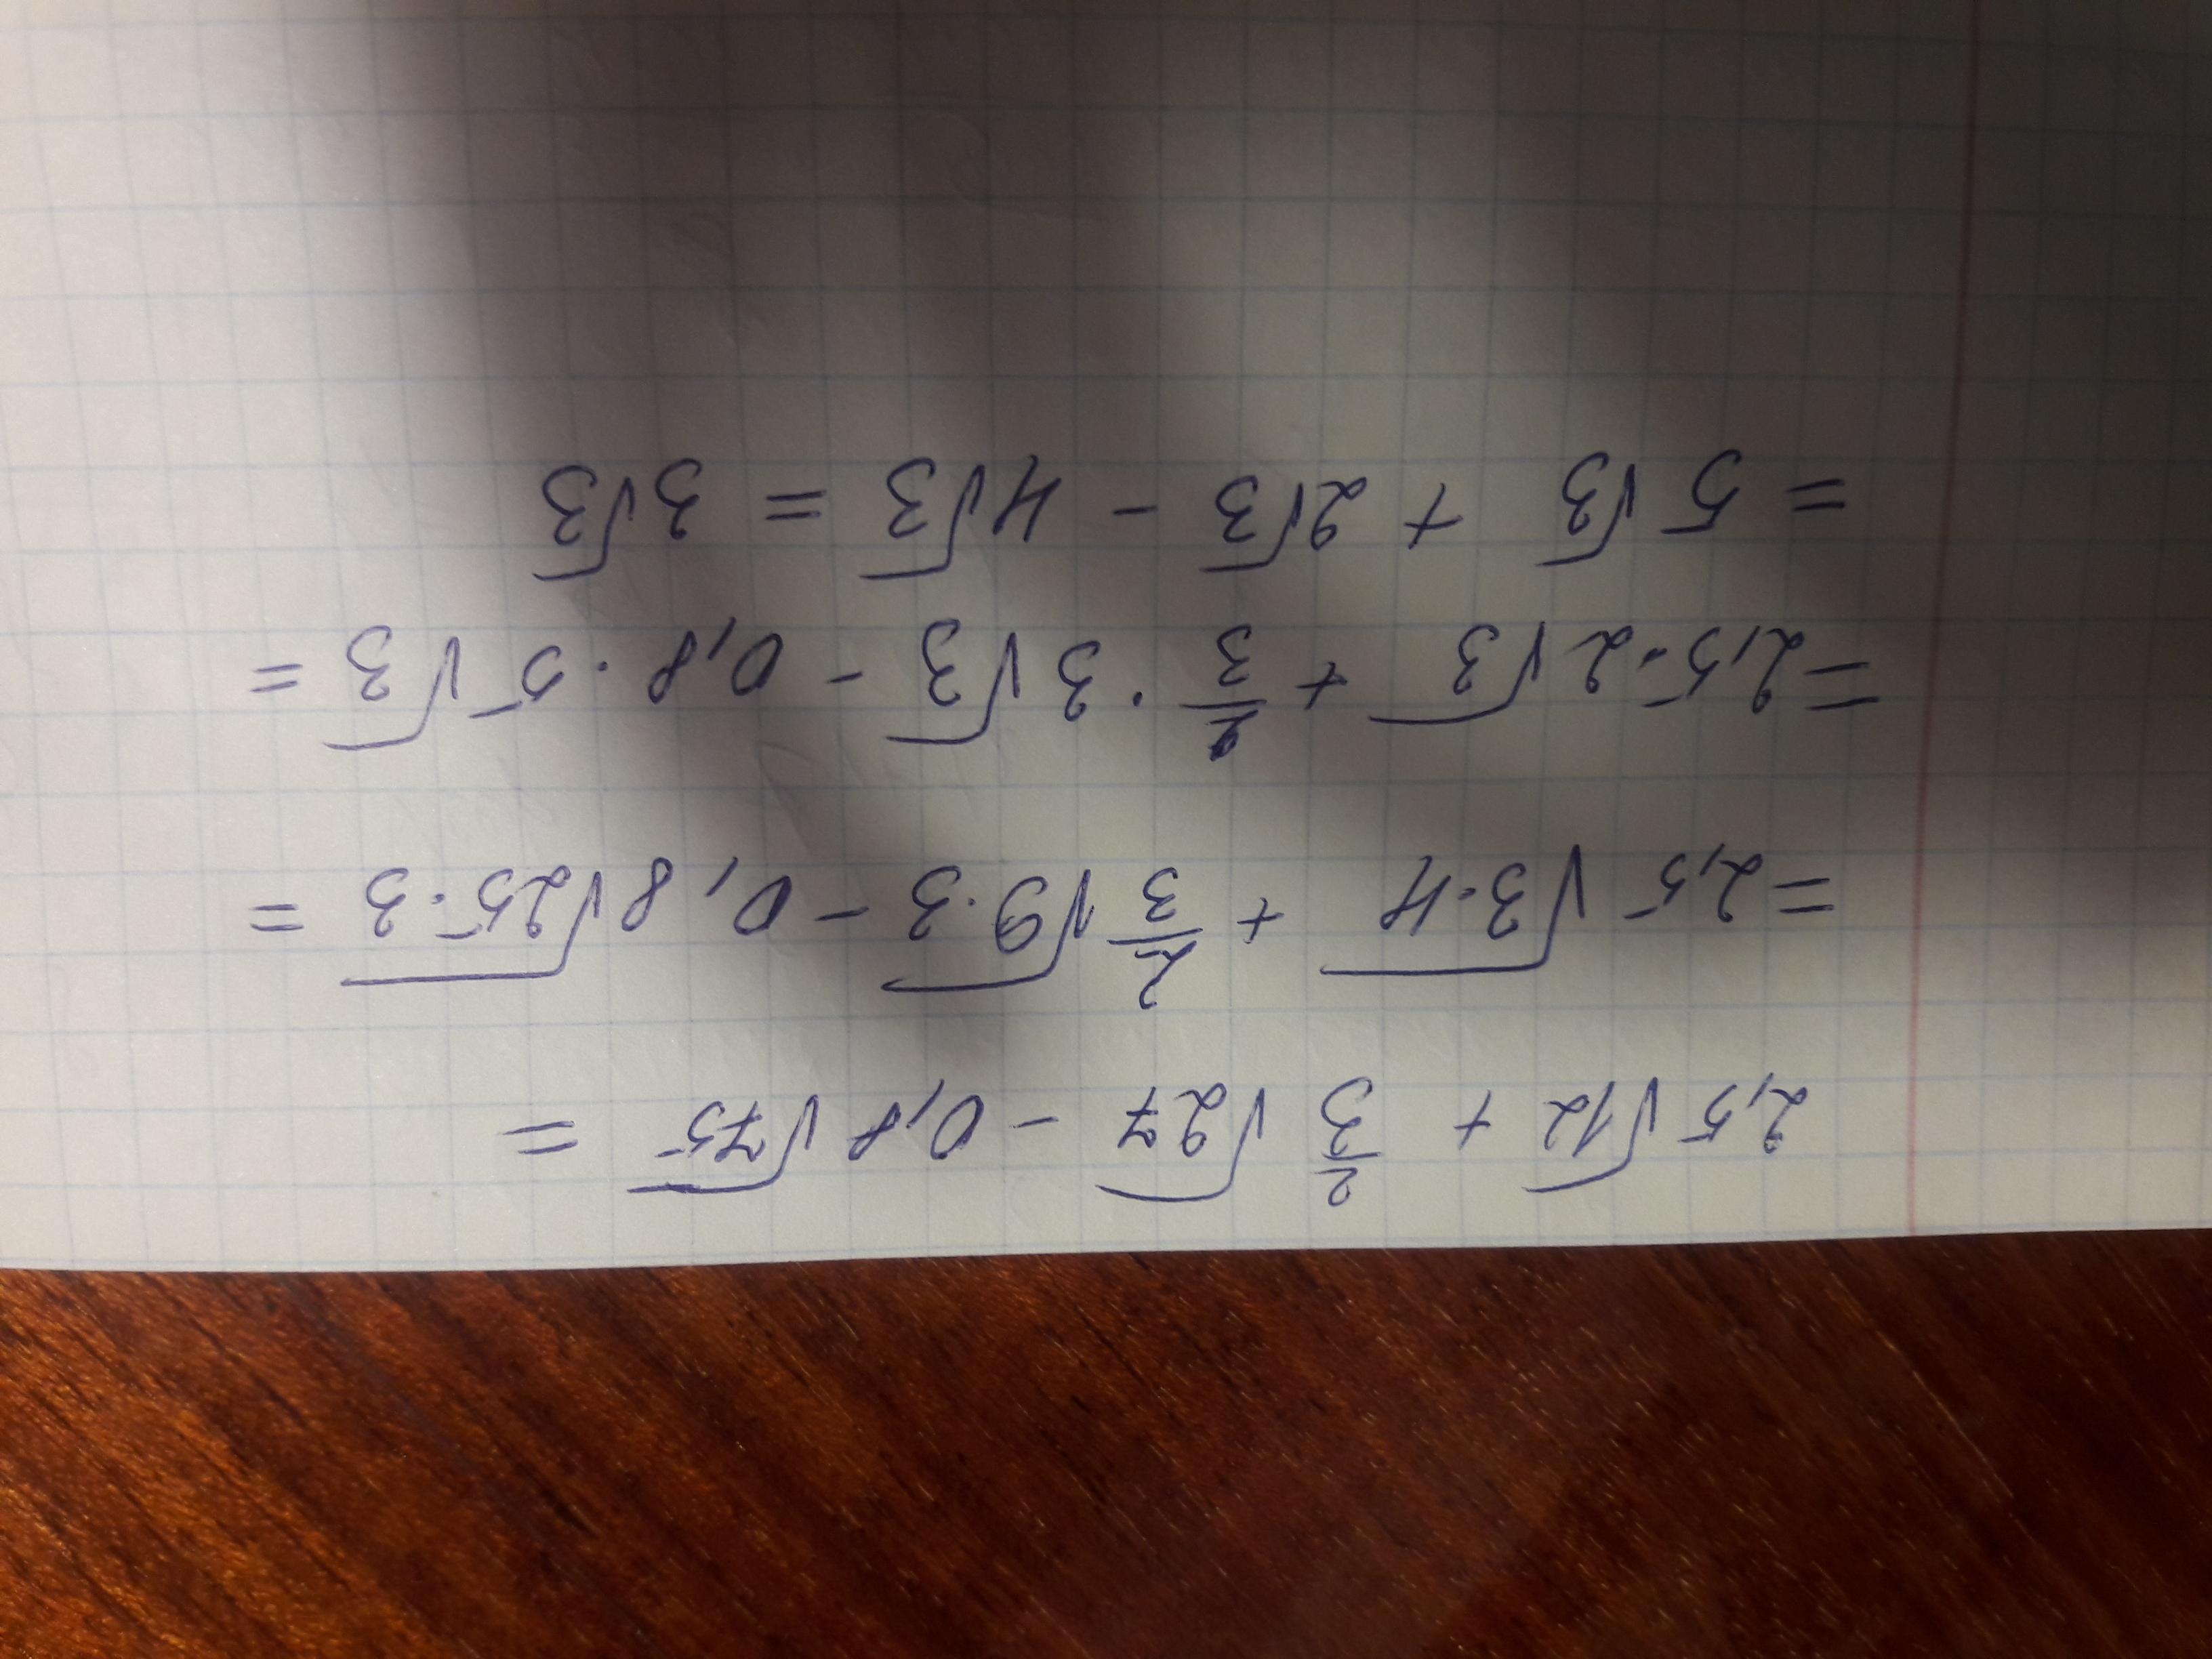 2,5√12 + 2/3 √27 - 0,8√75 =
= 2,5√3·4 + 2/3 √9·3 - 0,8√25·3 =
= 2,5·2√3 + 2/3 · 3√3 - 0,8·5√3 =
= 5√3 + 2√3 - 4√3 = 3√3